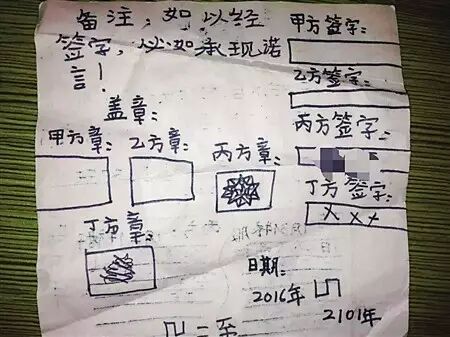 备注：如以经
签字，必如承现诺
言！
盖章：
甲方签字：
乙方签字：
丙方签字：
丁方签字：
×××
甲方章：
乙方章：
丙方章：
丁方章：
日期：
2016年
2101年
二至